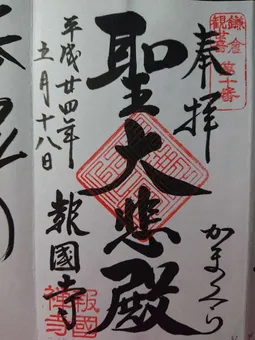 鎌倉
観音
第十番
奉拝
かまくら
聖大悲殿
平成廿四年
十一月十八日
報國寺
報國
禅寺